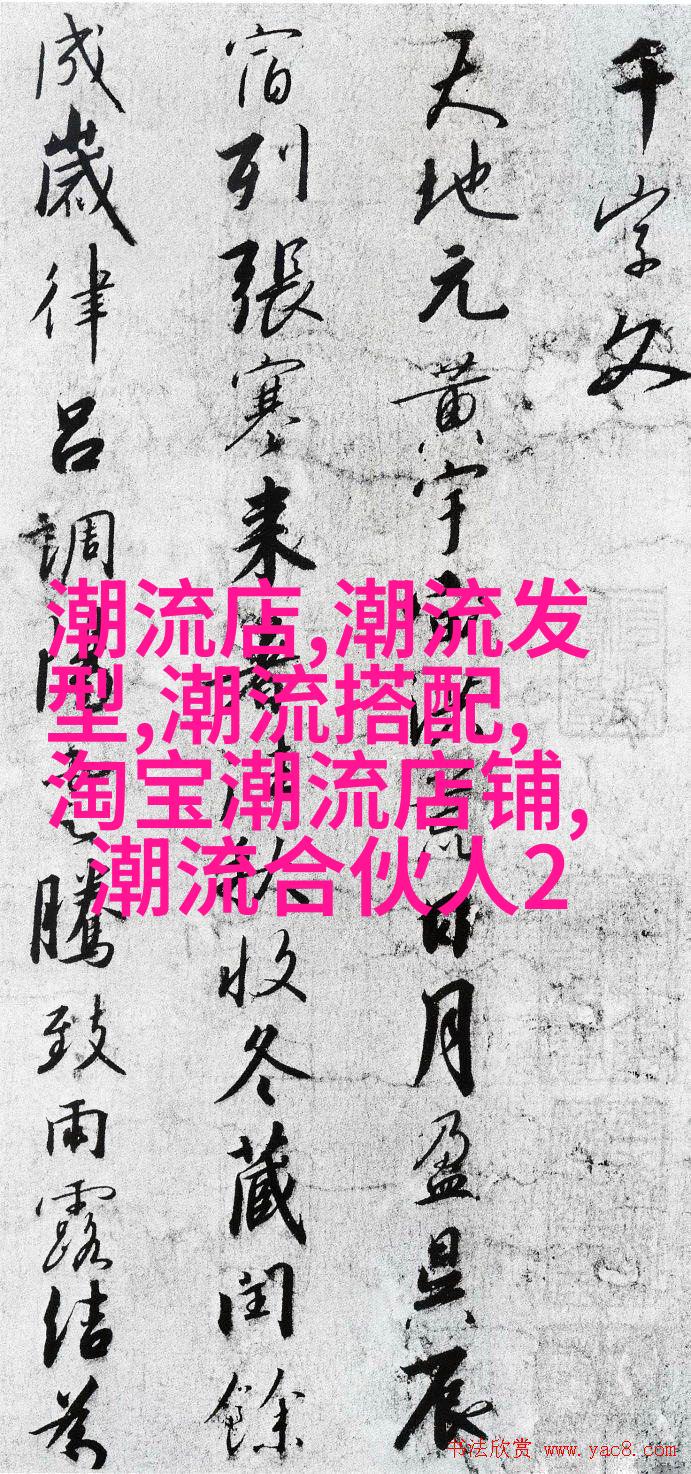 千字文
天地元黄宇宙洪荒日月盈昃辰
宿列張寒来暑往秋收冬藏閏餘
成歲律吕調陽雲騰致雨露结為
潮流店,潮流发
型,潮流搭配,
淘宝潮流店铺,
潮流合伙人2
书法欣赏 www.yac8.com